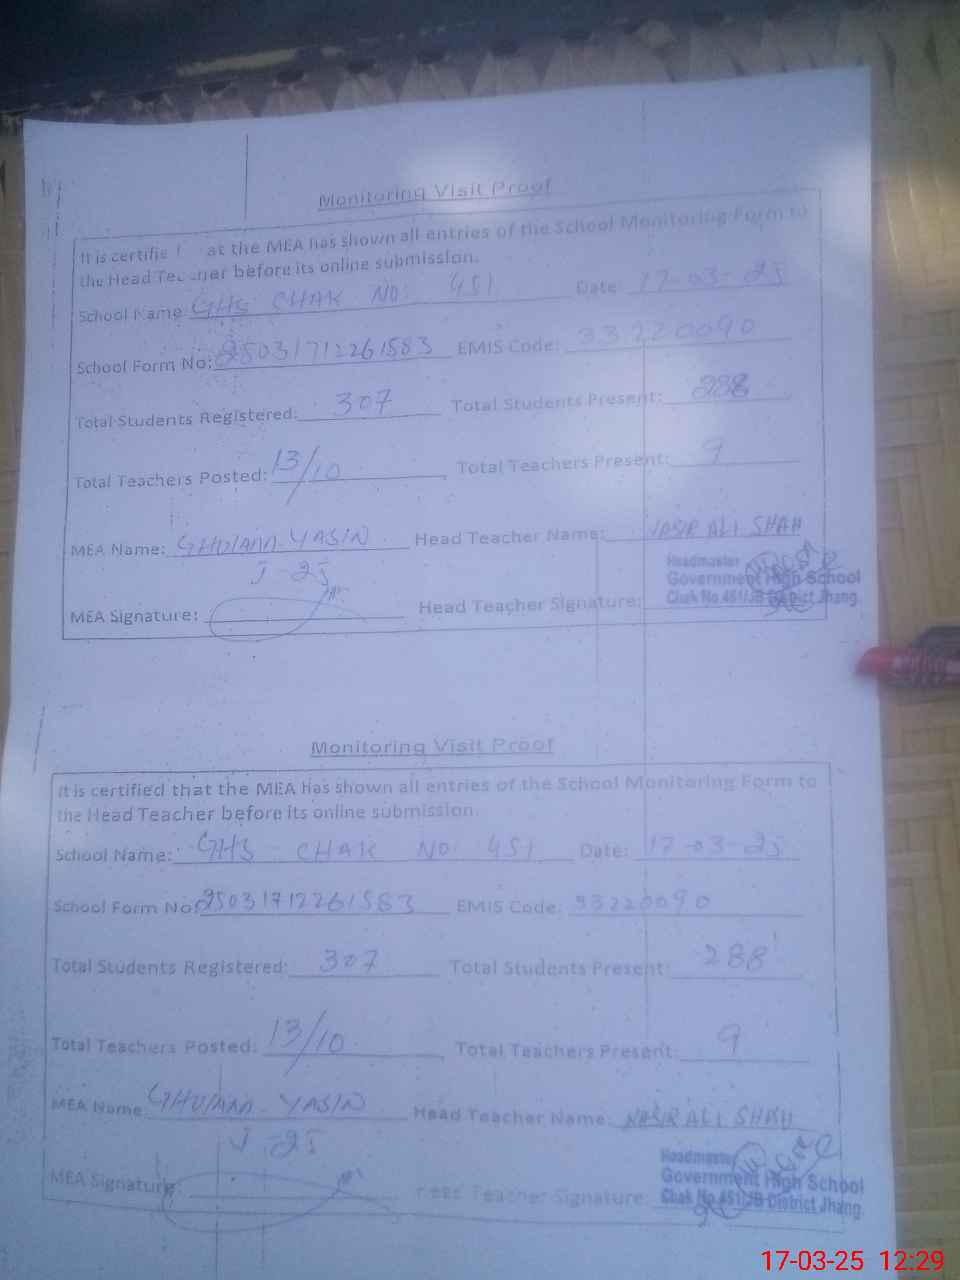 Monitoring Visit Proof
It is certifie at the MEA has shown all entries of the School Monitoring Form to
the Head Teacher before its online submission.
School Name GHS CHAK NO: 451 Date: 17-03-25
School Form No: 25031712261583 EMIS Code: 33220090
Total Students Registered: 307 Total Students Present: 288
Total Teachers Posted: 13/10 Total Teachers Present: 9
MEA Name: GHULAM YASIN Head Teacher Name: NASIR ALI SHAH
J-25
MEA Signature: Head Teacher Signature:
Headmaster
Government High School
Chak No.451/JB District Jhang.
Monitoring Visit Proof
It is certified that the MEA has shown all entries of the School Monitoring Form to
the Head Teacher before its online submission.
School Name: GHS CHAK NO: 451 Date: 17-03-25
School Form No: 25031712261583 EMIS Code: 33220090
Total Students Registered: 307 Total Students Present: 288
Total Teachers Posted: 13/10 Total Teachers Present: 9
MEA Name: GHULAM YASIN Head Teacher Name: NASIR ALI SHAH
J-25
MEA Signature: Head Teacher Signature:
Headmaster
Government High School
Chak No.451/JB District Jhang.
17-03-25 12:29